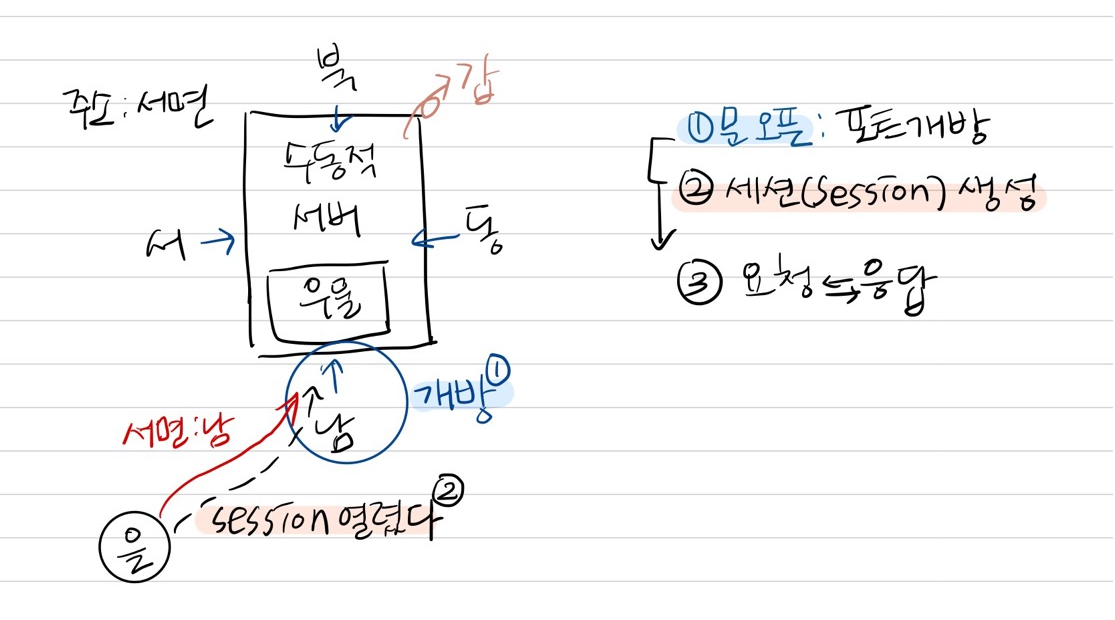 북
갑
주소:서면
수동적
서버
서
동
우물
개방①
서면:남
남
session 열렸다②
을
①문 오픈: 포트개방
②세션(Session) 생성
③ 요청⇆응답